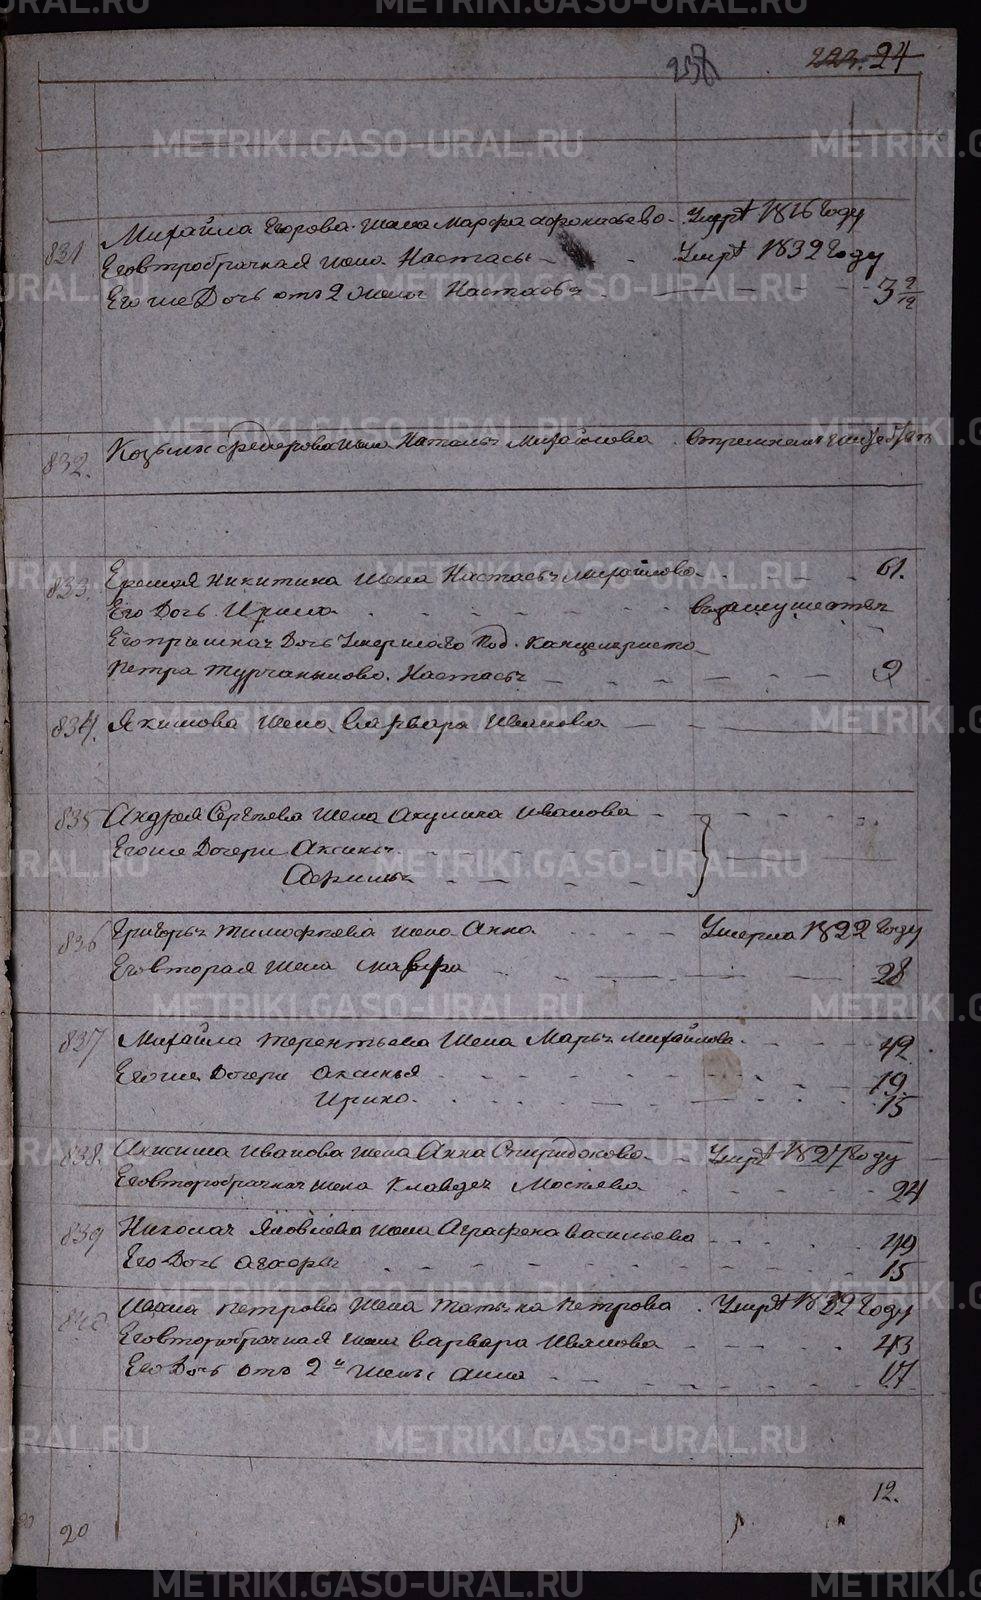 238 223. 24
831 Михайла Егорова жена Марфа Афонасьева - Умрѣ 1826 году
Его второбрачная жена Настасья - Умрѣ 1832 году
Его же Дочь отъ 2 жены Настасья 3 9/12
832. Козьмы Федорова жена Наталья Михайлова
833. Еремея Никитина жена Настасья Михайлова 61.
Его Дочь Ирина взамужествѣ
Его Дочь Умершаго Под. Канцеляриста
Петра Турчанинова. Настасья 9
834. Якимова жена Варвара Иванова
835 Андрея Сергѣева жена Акулина Иванова
Его же Дочери Аксинья
836 Григорья Тимофѣева жена Анна Умерла 1822 году
Его вторая жена Мавра 28
837 Михайла Терентьева жена Марья Михайлова 42
Его же Дочери Аксинья 19
Ирина 15
838. Анисима Иванова жена Анна Спиридонова Умрѣ 1827 году
Его второбрачная жена Клавдея 24
839 Николая Яковлева жена Аграфена Васильева 49
Его Дочь Агафья 15
840 Ивана Петрова жена Татьяна Петрова Умрѣ 1832 году
Его второбрачная жена Варвара Иванова 43
Его Дочь отъ 2й жены Анна 17
12.
20
METRIKI.GASO-URAL.RU